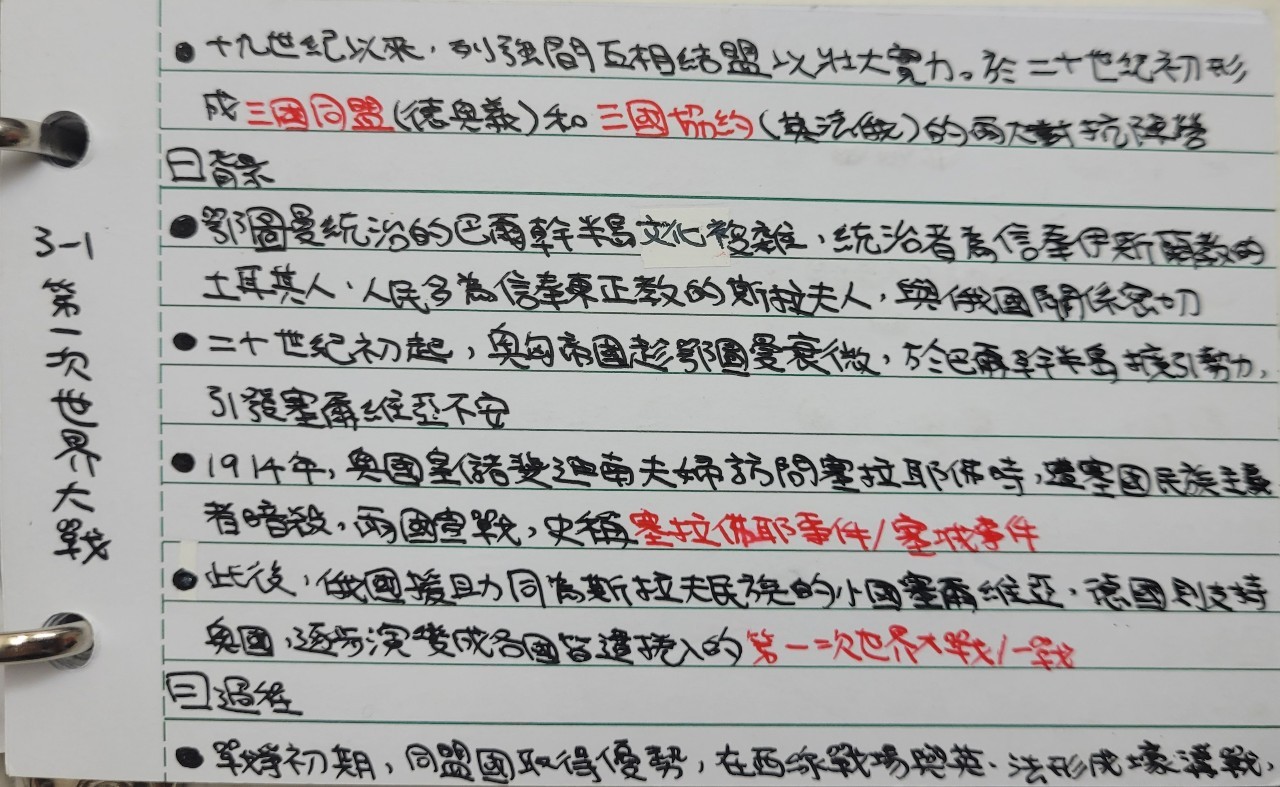 3-1 第一次世界大戰
●十九世紀以來，列強間互相結盟以壯大實力。於二十世紀初形
成三國同盟(德奧義)和三國協約(英法俄)的兩大對抗陣營
背景
●鄂圖曼統治的巴爾幹半島文化複雜，統治者為信奉伊斯蘭教的
土耳其人，人民多為信奉東正教的斯拉夫人，與俄國關係密切
●二十世紀初起，奧匈帝國趁鄂圖曼衰微，於巴爾幹半島擴引勢力，
引發塞爾維亞不安
●1914年，奧國皇儲斐迪南夫婦訪問塞拉耶佛時，遭塞國民族主義
者暗殺，兩國宣戰，史稱塞拉佛耶事件/塞城事件
●此後，俄國援助同為斯拉夫民族的小國塞爾維亞，德國則支持
奧國，逐步演變成各國皆遭捲入的第一二次世界大戰/一戰
過程
●戰爭初期，同盟國取得優勢，在西線戰場與英、法形成壕溝戰，